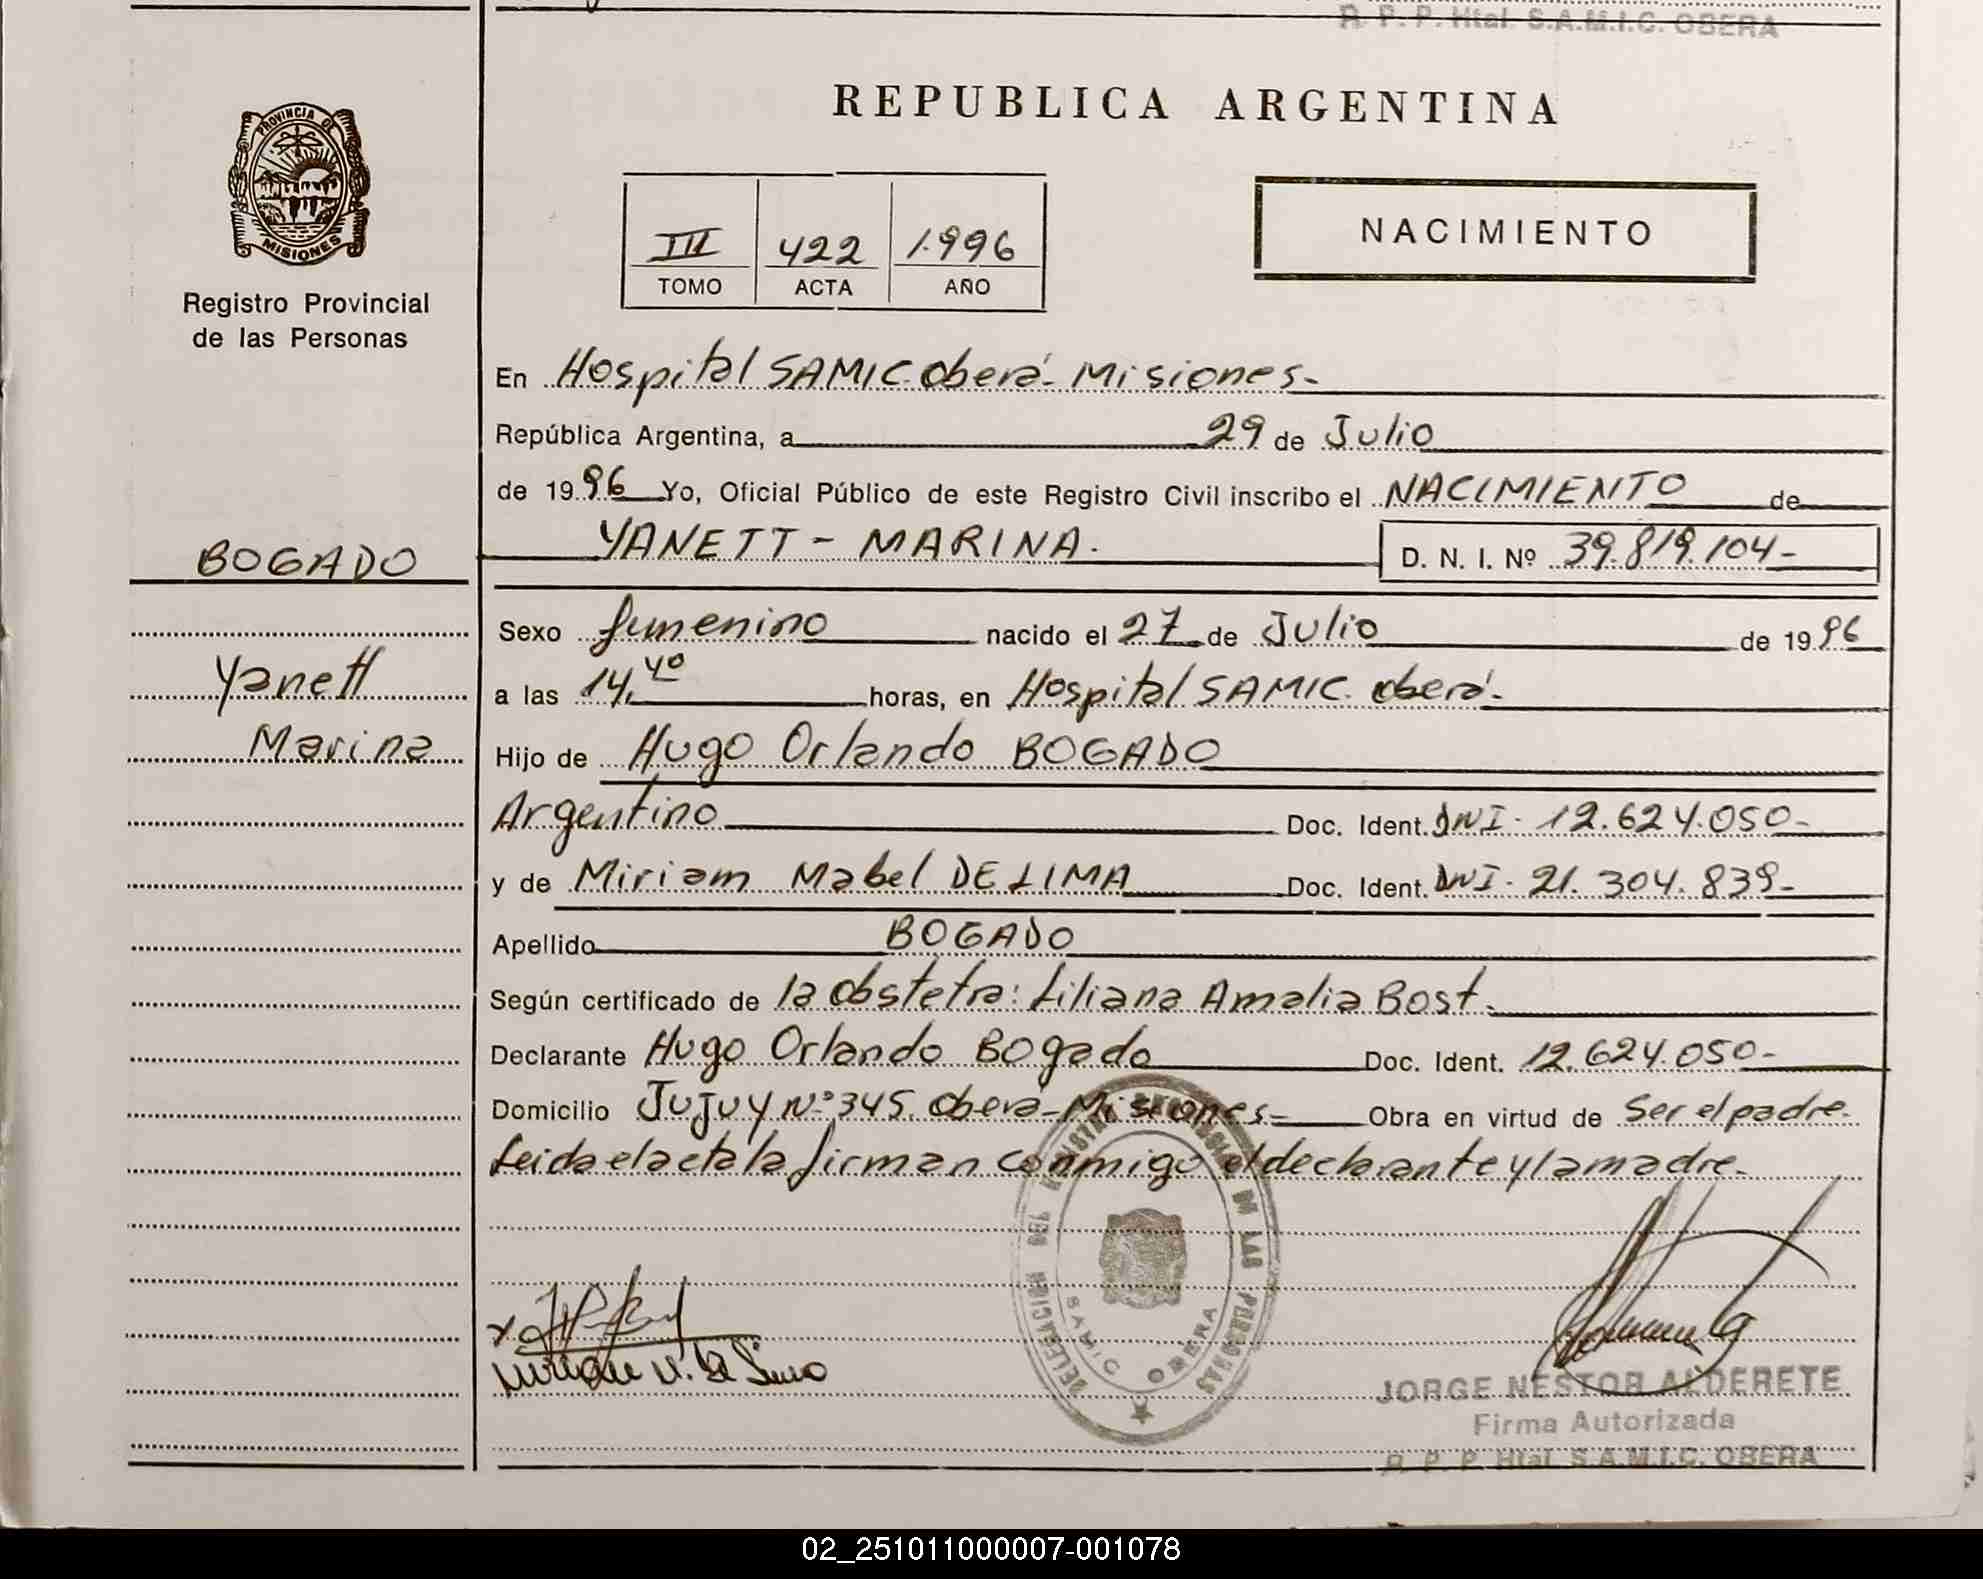 R. P. P. Htal. S.A.M.I.C. OBERA
REPUBLICA ARGENTINA
PROVINCIA DE
MISIONES
Registro Provincial
de las Personas
III 422 1.996
TOMO ACTA AÑO
NACIMIENTO
En Hospital SAMIC-Oberá- Misiones-
República Argentina, a 29 de Julio
de 1996 Yo, Oficial Público de este Registro Civil inscribo el NACIMIENTO de
BOGADO
YANETT - MARINA.
D. N. I. Nº 39.819.104-
Sexo femenino nacido el 27 de Julio de 1996
Yanett
a las 14,40 horas, en Hospital SAMIC. Oberá-
Marina
Hijo de Hugo Orlando BOGADO
Argentino Doc. Ident. DNI- 12.624.050-
y de Miriam Mabel DE LIMA Doc. Ident. DNI- 21.304.839-
Apellido BOGADO
Según certificado de la obstetra: Liliana Amalia Bost-
Declarante Hugo Orlando Bogado Doc. Ident. 12.624.050-
Domicilio Jujuy Nº 345. Obera-Misiones- Obra en virtud de Ser el padre.
Leida el acta la firman conmigo el declarante y la madre-
DELEGACION DEL REGISTRO PROVINCIAL DE LAS PERSONAS
SAMIC OBERA
JORGE NESTOR ALDERETE
Firma Autorizada
R. P. P. Htal. S.A.M.I.C. OBERA
02_251011000007-001078